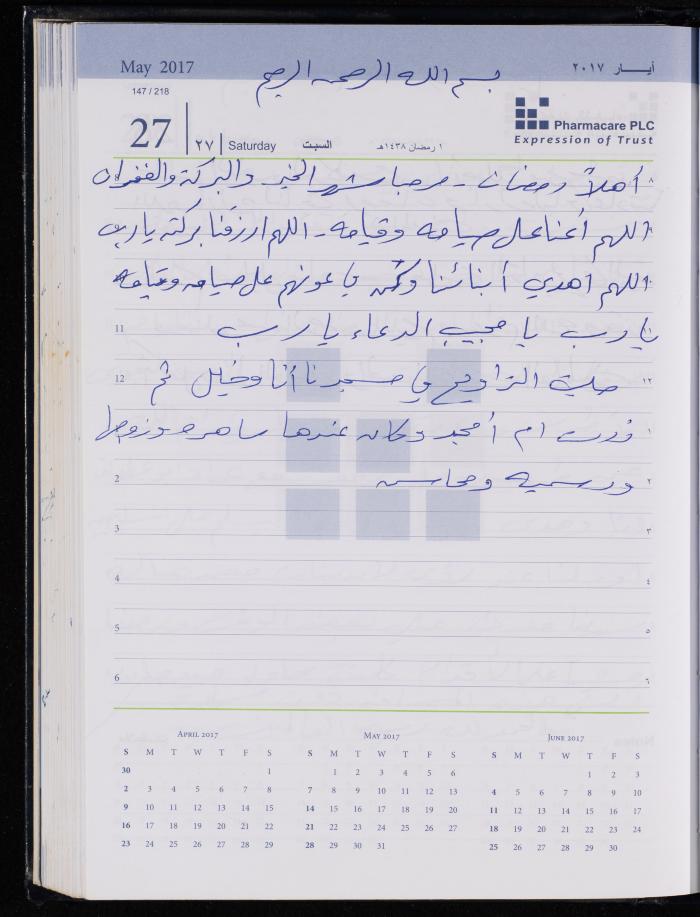 May 2017
أيــــار ٢٠١٧
بسم الله الرحمن الرحيم
147 / 218
27
٢٧
Saturday
السبت
١ رمضان ١٤٣٨هـ
Pharmacare PLC
Expression of Trust
أهلاً رمضان - مرحبا شهر الخير والبركة والغفران
اللهم أعنا على صيامه وقيامه - اللهم ارزقنا بركته يا رب
اللهم اهدي أبنائنا وكن في عونهم على صيامه وقيامه
يا رب يا مجيب الدعاء يا رب
11
صليت التراويح في مسجدنا أنا وخليل ثم
12 ١٢
زرت ام أمجد وكان عندها ساهره وزوجها
١
ورسميه ومحاسن
2 ٢
3 ٣
4 ٤
5 ٥
6 ٦
APRIL 2017
S M T W T F S
30 1
2 3 4 5 6 7 8
9 10 11 12 13 14 15
16 17 18 19 20 21 22
23 24 25 26 27 28 29
MAY 2017
S M T W T F S
1 2 3 4 5 6
7 8 9 10 11 12 13
14 15 16 17 18 19 20
21 22 23 24 25 26 27
28 29 30 31
JUNE 2017
S M T W T F S
1 2 3
4 5 6 7 8 9 10
11 12 13 14 15 16 17
18 19 20 21 22 23 24
25 26 27 28 29 30